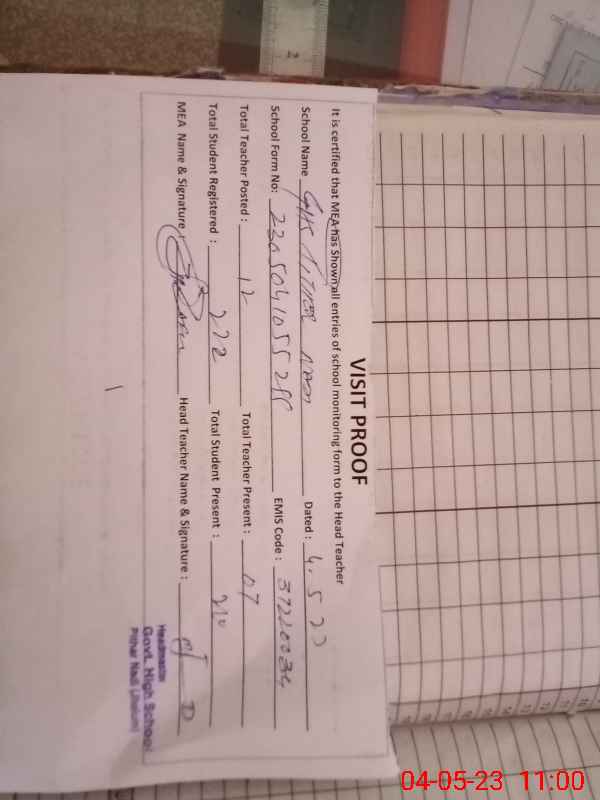 VISIT PROOF
It is certified that MEA has Shown all entries of school monitoring form to the Head Teacher
School Name GHS Dated : 4.5.23
School Form No: EMIS Code : 37220034
Total Teacher Posted : 12 Total Teacher Present : 07
Total Student Registered : 272 Total Student Present :
MEA Name & Signature : Head Teacher Name & Signature :
Headmaster
Govt. High School
Pithar Nadi (Jhelum)
04-05-23 11:00